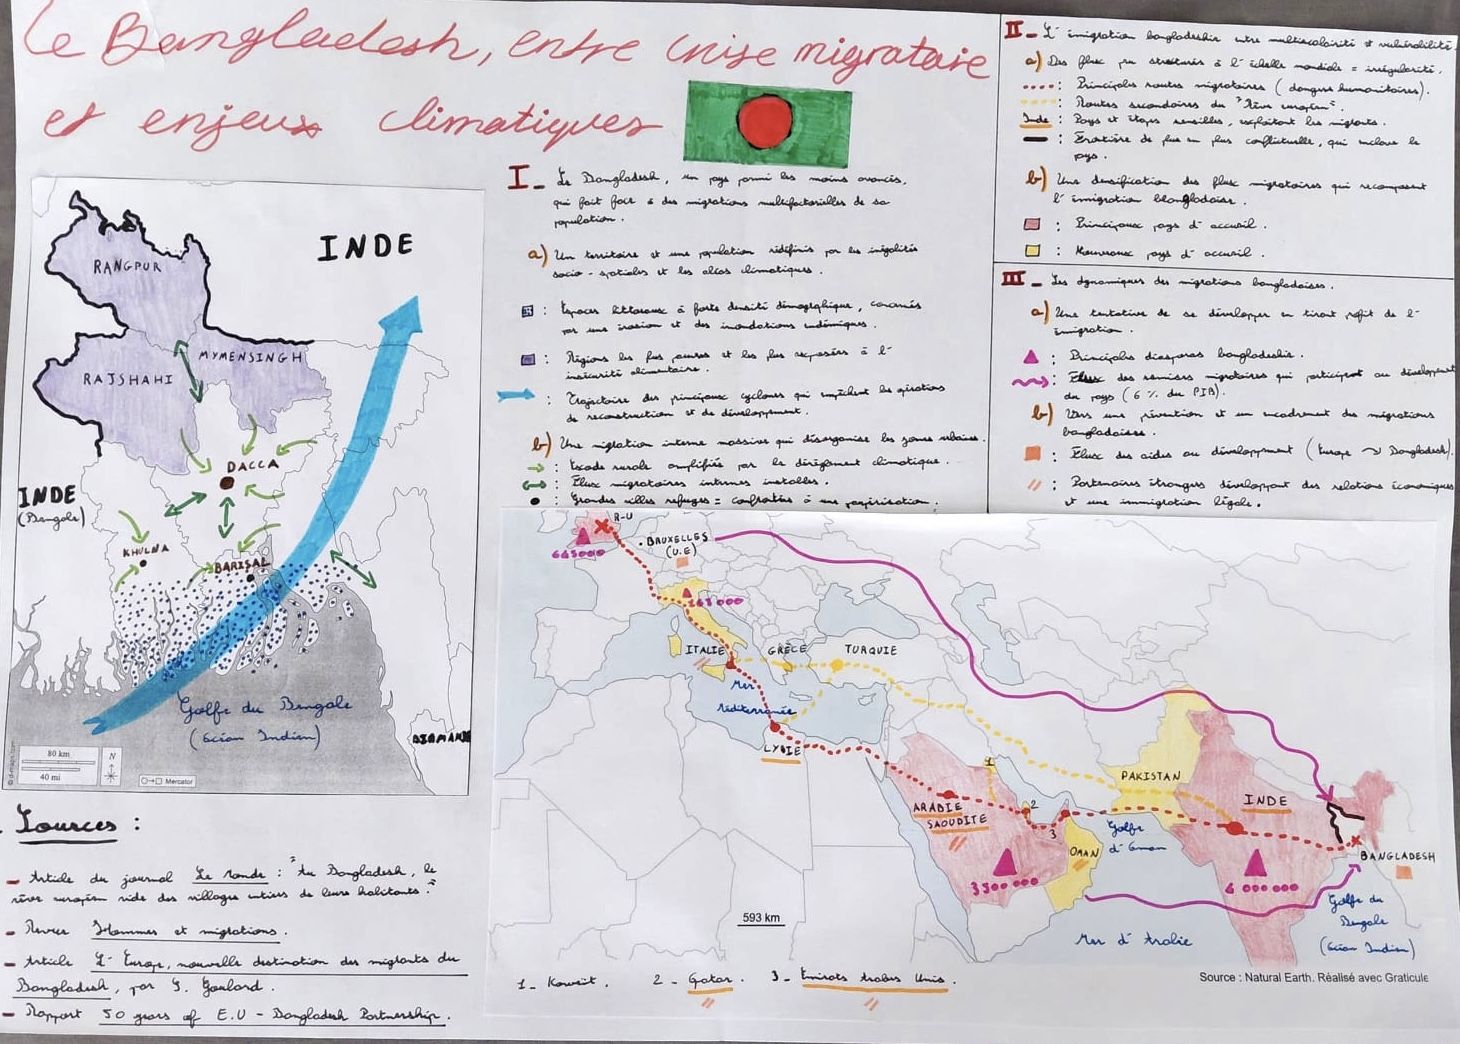 Le Bangladesh, entre crise migratoire
et enjeux climatiques
I_ Le Bangladesh, un pays parmi les moins avancés,
qui fait face à des migrations multifactorielles de sa
population.
a) Un territoire et une population redéfinis par les inégalités
socio-spatiales et les aléas climatiques.
: Espaces littoraux à forte densité démographique, concernés
par une érosion et des inondations endémiques.
: Régions les plus pauvres et les plus exposées à l'
insécurité alimentaire.
: Trajectoire des principaux cyclones qui empêchent les opérations
de reconstruction et de développement.
b) Une migration interne massive qui désorganise les zones urbaines.
: Exode rural amplifié par le dérèglement climatique.
: Flux migratoires internes instables.
: Grandes villes refuges = confrontées à une paupérisation.
II_ L'émigration bangladeshie entre multiscalarité et vulnérabilité.
a) Des flux peu structurés à l'échelle mondiale = irrégularité.
: Principales routes migratoires (dangers humanitaires).
: Routes secondaires du "Rêve européen".
Inde : Pays et étapes sensibles, exploitant les migrants.
: Frontière de plus en plus conflictuelle, qui enclave le
pays.
b) Une densification des flux migratoires qui recomposent
l'émigration bangladaise.
: Principaux pays d'accueil.
: Nouveaux pays d'accueil.
III_ Les dynamiques des migrations bangladaises.
a) Une tentative de se développer en tirant profit de l'
émigration.
: Principales diasporas bangladeshis.
: Flux des remises migratoires qui participent au développement
du pays (6 % du PIB).
b) Vers une prévention et un encadrement des migrations
bangladaises.
: Flux des aides au développement (Europe → Bangladesh).
: Partenaires étrangers développant des relations économiques
et une immigration légale.
INDE
RANGPUR
MYMENSINGH
RAJSHAHI
DACCA
INDE
(Bengale)
KHULNA
BARISAL
Golfe du Bengale
(Océan Indien)
80 km
40 mi
N
Mercator
© d-maps.com
R-U
BRUXELLES
(U.E)
ITALIE
GRÈCE
TURQUIE
Mer
Méditerranée
LYBIE
1
PAKISTAN
INDE
ARABIE
SAOUDITE
2
3
Golfe
d'Oman
OMAN
BANGLADESH
593 km
Mer d'Arabie
Golfe du
Bengale
(Océan Indien)
1_ Koweit. 2_ Qatar. 3_ Emirats Arabes Unis.
Source : Natural Earth. Réalisé avec Graticule
Sources :
- Article du journal Le Monde : "Au Bangladesh, le
rêve européen vide des villages entiers de leurs habitants."
- Revue Hommes et migrations.
- Article L'Europe, nouvelle destination des migrants du
Bangladesh, par S. Goulard.
- Rapport 50 years of E.U - Bangladesh Partnership.